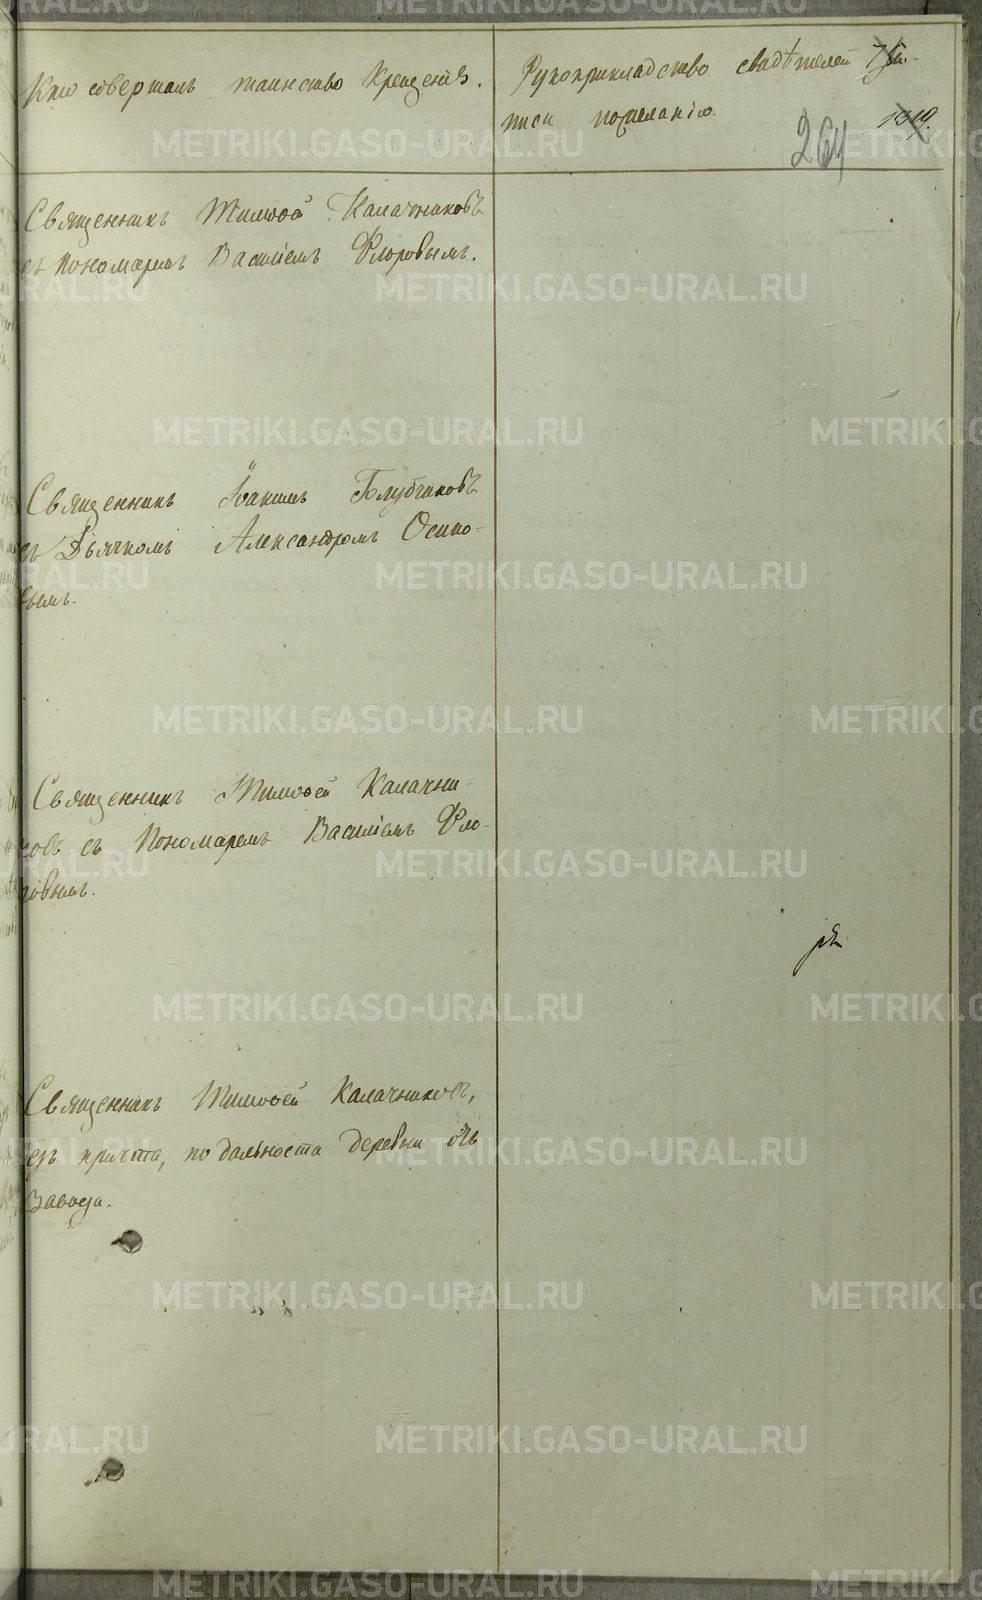 Кто совершалъ таинство Крещенія.
Рукоприкладство свидѣтелей
писи по желанію.
264
Священникъ Тимоѳей Калачниковъ
съ Пономаремъ Василіемъ Флоровымъ.
Священникъ Іоакимъ Голубчиковъ
съ Дьячкомъ Александромъ Осипо-
вымъ.
Священникъ Тимоѳей Калачни-
ковъ съ Пономаремъ Василіемъ Фло-
ровымъ.
Священникъ Тимоѳей Калачниковъ,
безъ причта, по дальности деревни отъ
Завода.
METRIKI.GASO-URAL.RU